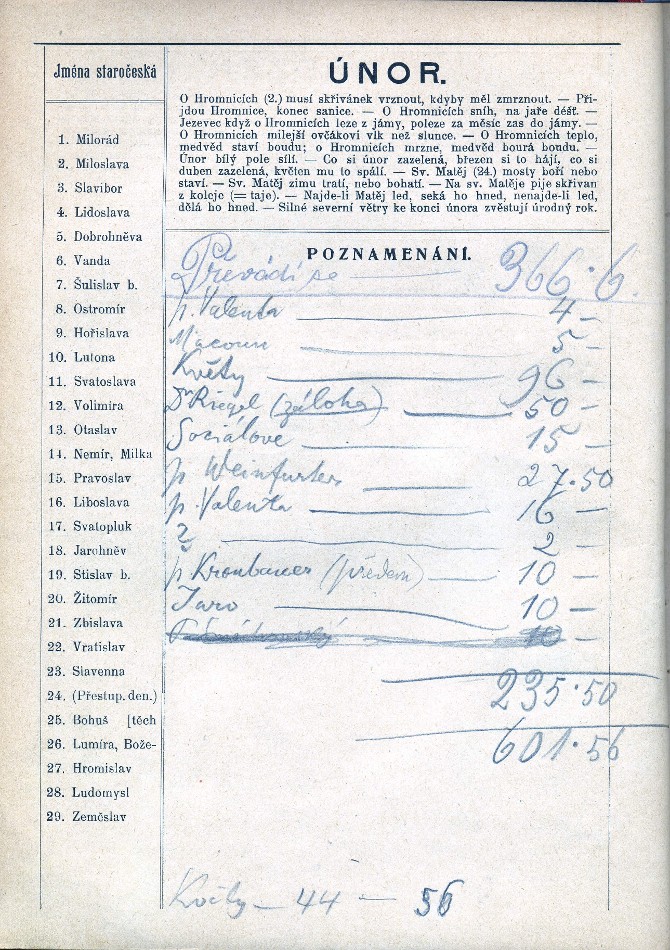 Jména staročeská
1. Milorád
2. Miloslava
3. Slavibor
4. Lidoslava
5. Dobrohněva
6. Vanda
7. Šulislav b.
8. Ostromír
9. Hořislava
10. Lutona
11. Svatoslava
12. Volimíra
13. Otaslav
14. Nemír, Milka
15. Pravoslav
16. Liboslava
17. Svatopluk
18. Jarohněv
19. Stislav b.
20. Žitomír
21. Zbislava
22. Vratislav
23. Slavenna
24. (Přestup. den.)
25. Bohuš [těch
26. Lumíra, Bože-
27. Hromislav
28. Ludomysl
29. Zeměslav
ÚNOR.
O Hromnicích (2.) musí skřivánek vrznout, kdyby měl zmrznout. — Při-
jdou Hromnice, konec sanice. — O Hromnicích sníh, na jaře déšť. —
Jezevec když o Hromnicích leze z jámy, poleze za měsíc zas do jámy. —
O Hromnicích milejší ovčákovi vlk než slunce. — O Hromnicích teplo,
medvěd staví boudu; o Hromnicích mrzne, medvěd bourá boudu. —
Únor bílý pole sílí. — Co si únor zazelená, březen si to hájí, co si
duben zazelená, květen mu to spálí. — Sv. Matěj (24.) mosty boří nebo
staví. — Sv. Matěj zimu tratí, nebo bohatí. — Na sv. Matěje pije skřivan
z koleje (= taje). — Najde-li Matěj led, seká ho hned, nenajde-li led,
dělá ho hned. — Silné severní větry ke konci února zvěstují úrodný rok.
POZNAMENÁNÍ.
Převádí se — 366·6
p. Valenta — 4 —
Macoun — 5 —
Květy — 96 —
Dr Riegel (záloha) — 50 —
Sociálové — 15 —
p Weinfurter — 27·50
p. Valenta — 16 —
— 2 —
p Kronbauer (předem) — 10 —
Jaro — 10 —
10 —
235·50
601·56
Květy — 44 — 56